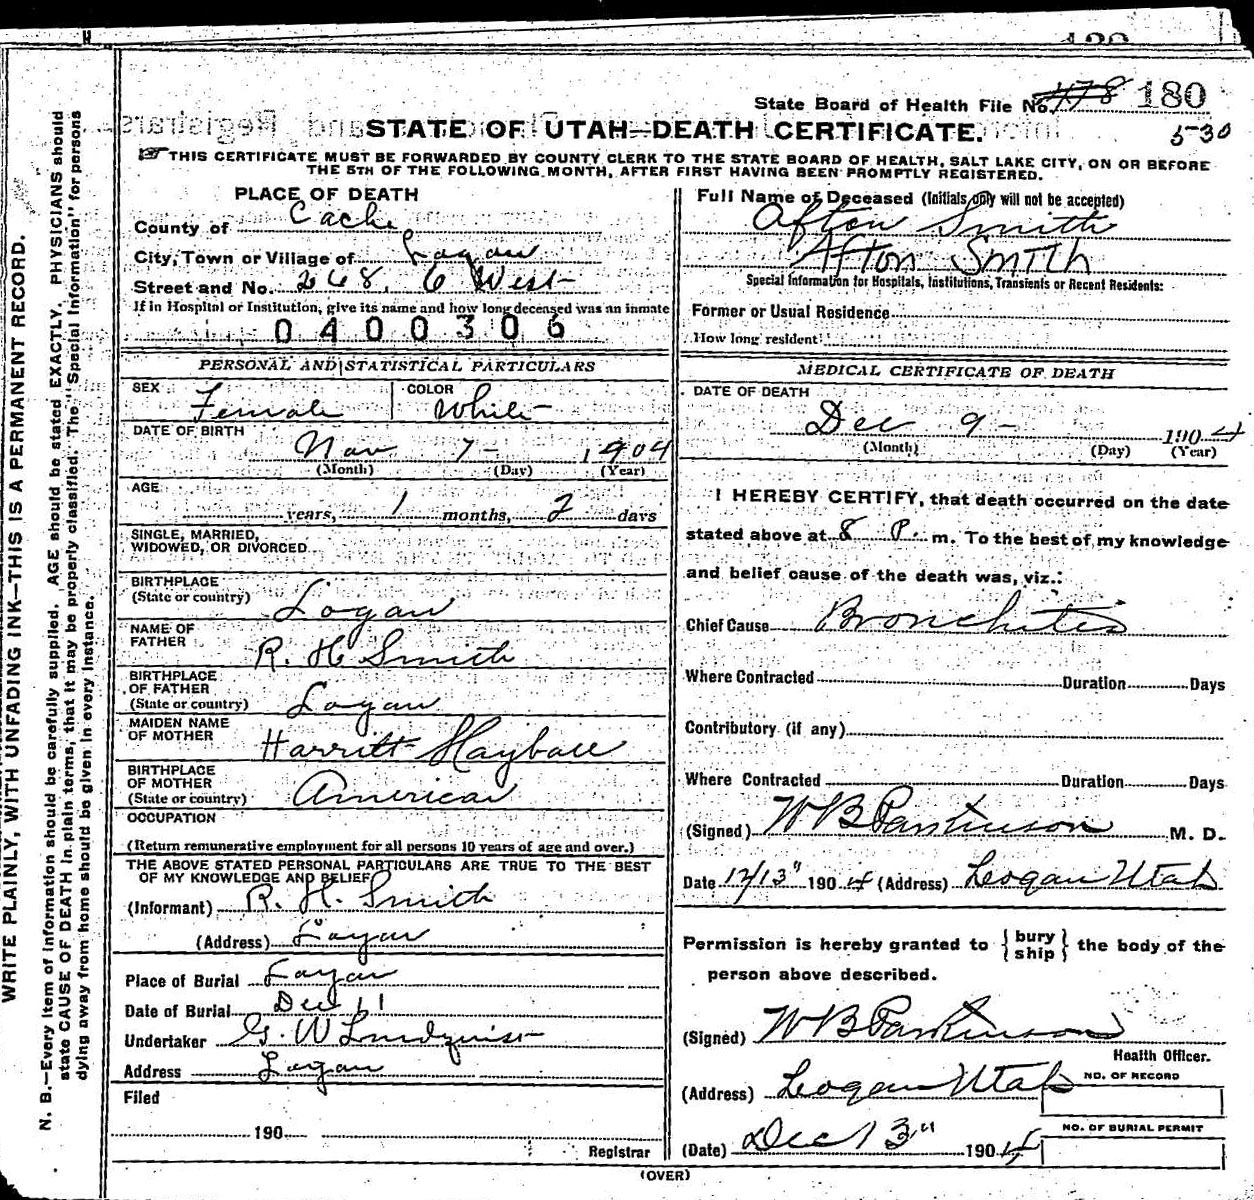 State Board of Health File No. 178 180
STATE OF UTAH—DEATH CERTIFICATE.
530
THIS CERTIFICATE MUST BE FORWARDED BY COUNTY CLERK TO THE STATE BOARD OF HEALTH, SALT LAKE CITY, ON OR BEFORE
THE 5TH OF THE FOLLOWING MONTH, AFTER FIRST HAVING BEEN PROMPTLY REGISTERED.
WRITE PLAINLY, WITH UNFADING INK—THIS IS A PERMANENT RECORD.
N. B.—Every item of information should be carefully supplied. AGE should be stated EXACTLY. PHYSICIANS should
state CAUSE OF DEATH in plain terms, that it may be properly classified. The "Special Information" for persons
dying away from home should be given in every instance.
PLACE OF DEATH
County of Cache
City, Town or Village of Logan
Street and No. 268. 6 West
If in Hospital or Institution, give its name and how long deceased was an inmate
0400306
PERSONAL AND STATISTICAL PARTICULARS
SEX Female COLOR White
DATE OF BIRTH
Nov 7 - 1904
(Month) (Day) (Year)
AGE
years, 1 months, 2 days
SINGLE, MARRIED,
WIDOWED, OR DIVORCED
BIRTHPLACE
(State or country) Logan
NAME OF
FATHER R. H. Smith
BIRTHPLACE
OF FATHER
(State or country) Logan
MAIDEN NAME
OF MOTHER Harritt Hayball
BIRTHPLACE
OF MOTHER
(State or country) American
OCCUPATION
(Return remunerative employment for all persons 10 years of age and over.)
THE ABOVE STATED PERSONAL PARTICULARS ARE TRUE TO THE BEST
OF MY KNOWLEDGE AND BELIEF
(Informant) R. H. Smith
(Address) Logan
Place of Burial Logan
Date of Burial Dec 11
Undertaker G. W Lindquist
Address Logan
Filed
190
Registrar
Full Name of Deceased (Initials only will not be accepted)
Afton Smith
Afton Smith
Special Information for Hospitals, Institutions, Transients or Recent Residents:
Former or Usual Residence
How long resident
MEDICAL CERTIFICATE OF DEATH
DATE OF DEATH
Dec 9 - 1904
(Month) (Day) (Year)
I HEREBY CERTIFY, that death occurred on the date
stated above at 8 P. m. To the best of my knowledge
and belief cause of the death was, viz.:
Chief Cause Bronchitis
Where Contracted Duration Days
Contributory (if any)
Where Contracted Duration Days
(Signed) W B Parkinson M. D.
Date 12/13" 1904 (Address) Logan Utah
Permission is hereby granted to { bury
ship } the body of the
person above described.
(Signed) W B Parkinson
Health Officer.
(Address) Logan Utah
NO. OF RECORD
(Date) Dec 13" 1904
NO. OF BURIAL PERMIT
(OVER)